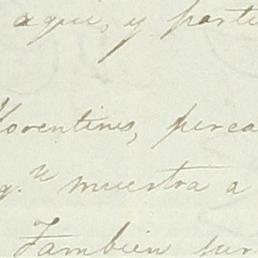 aqui, y parti
Florentino, perca
q.ᵉ muestra a
Tambien sur